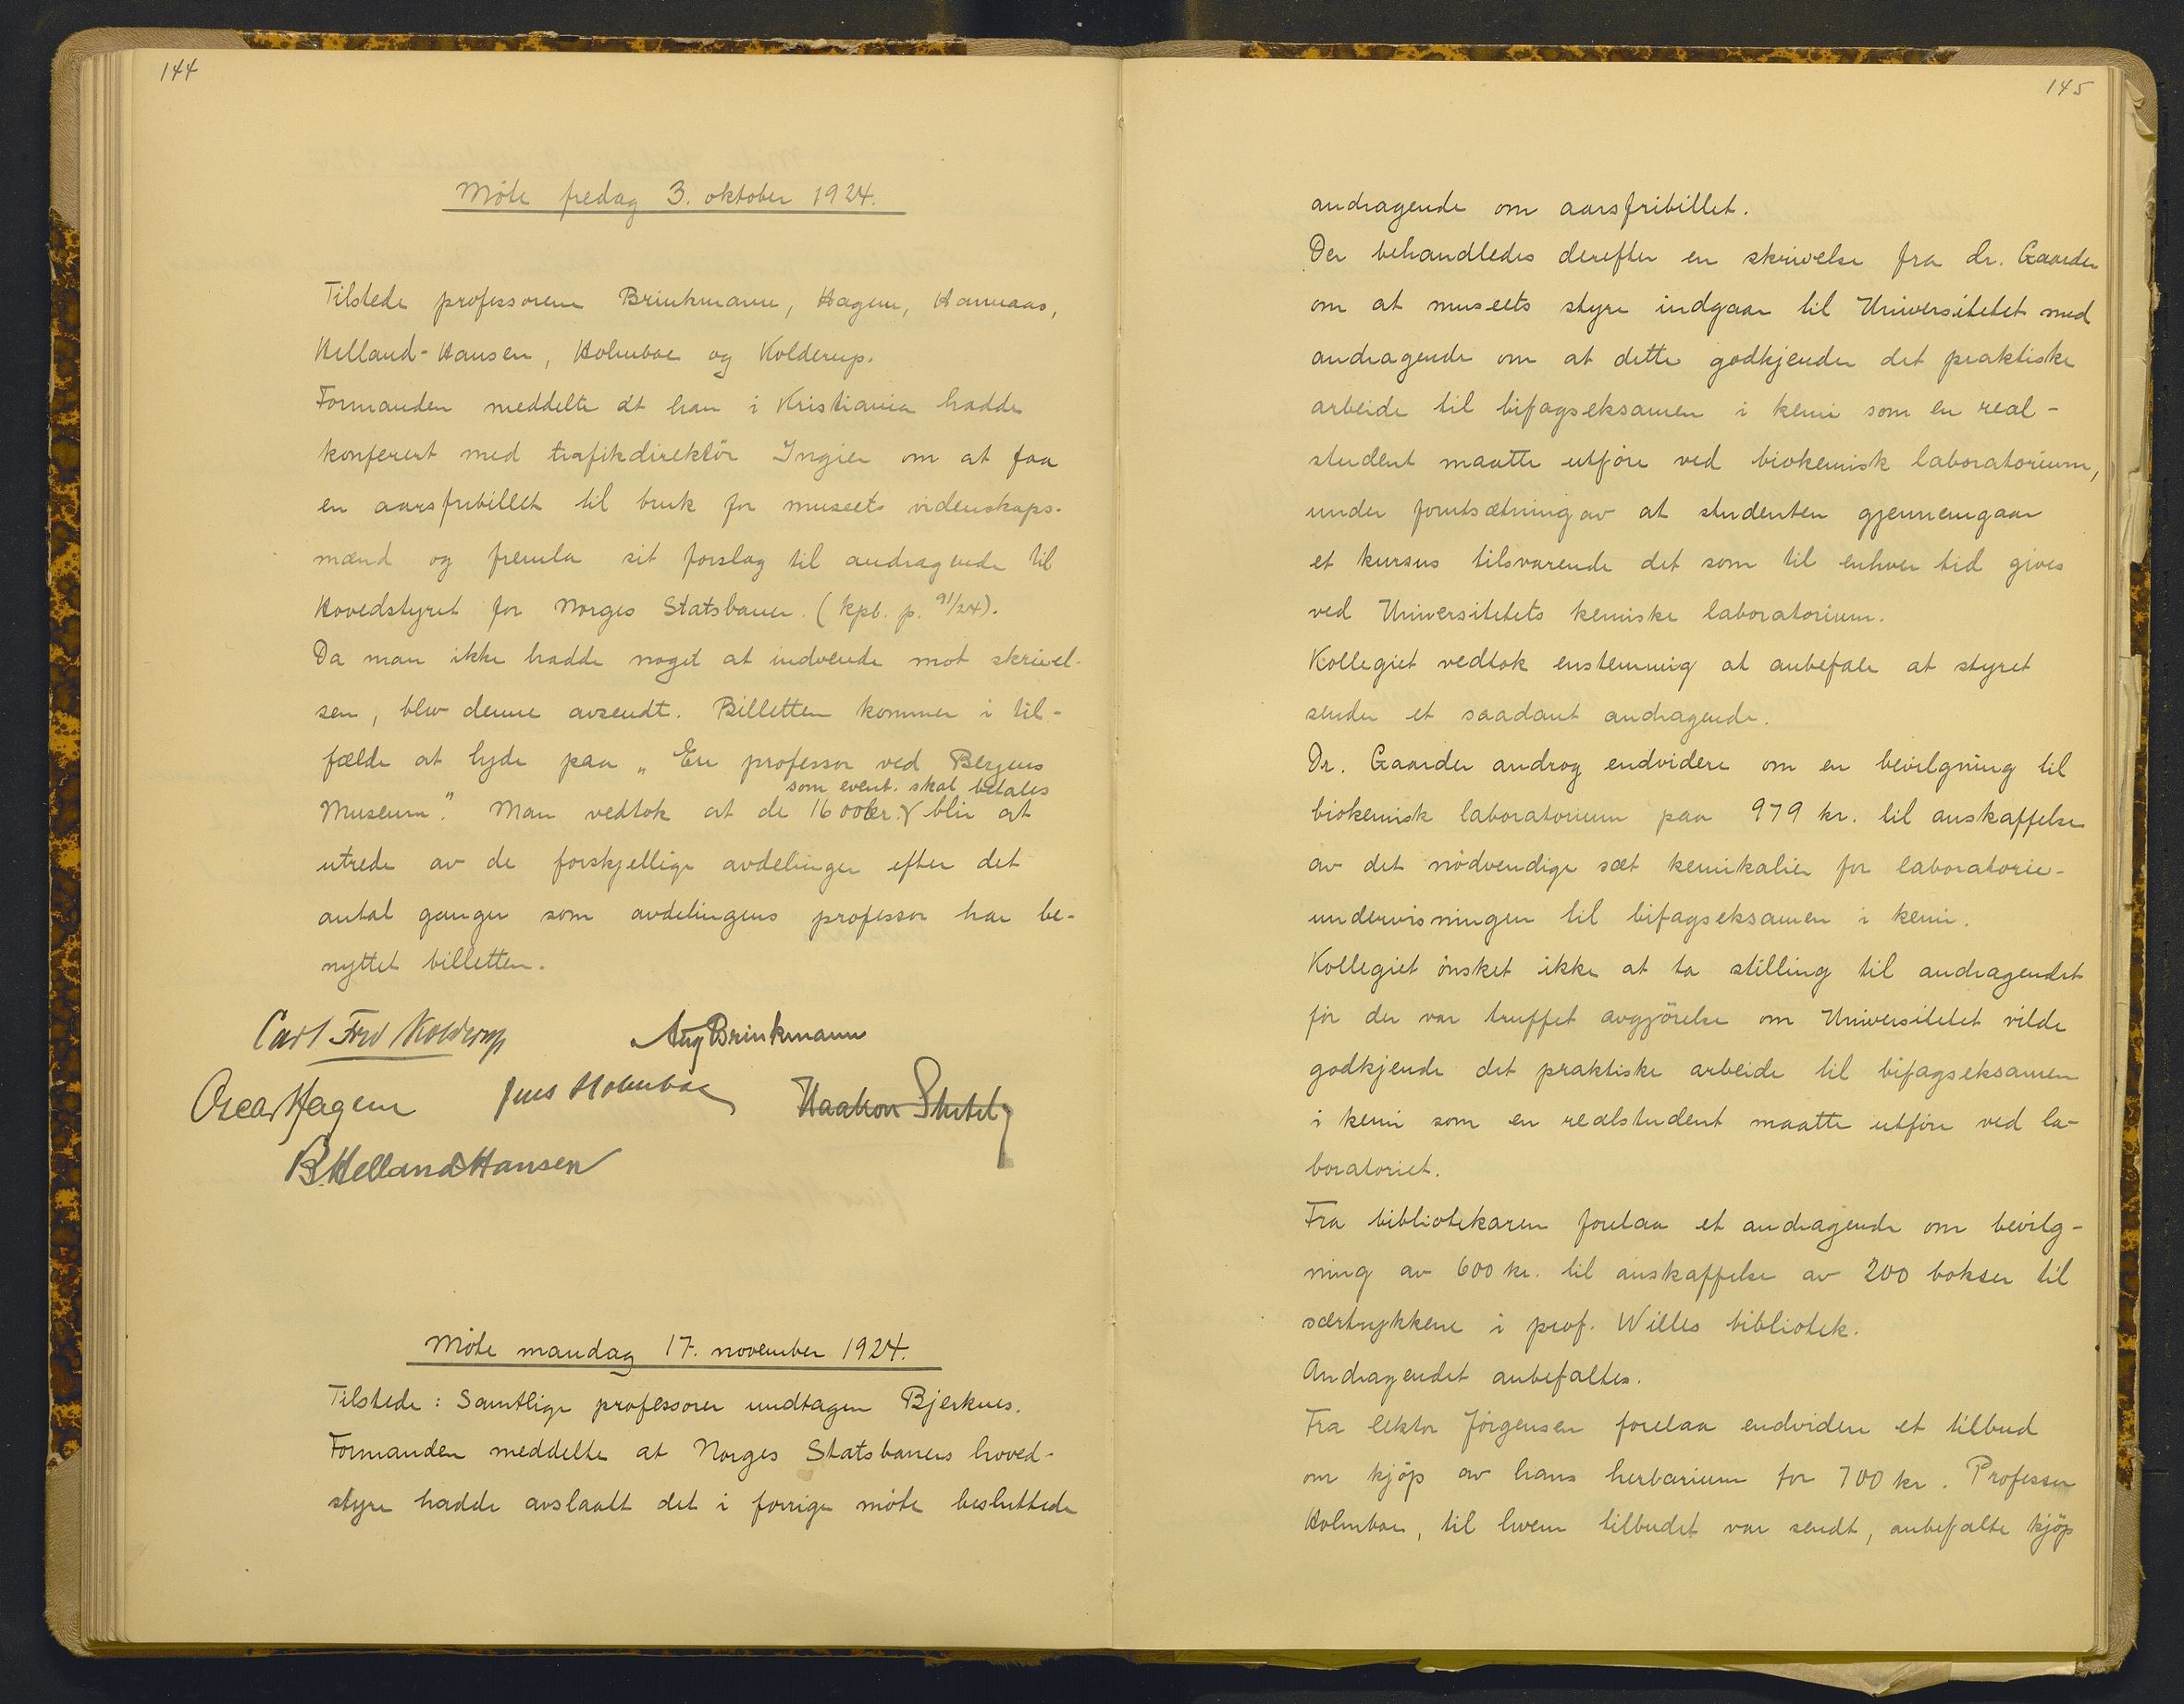 144
Möte fredag 3. oktober 1924.
Tilstede professorene Brinkmann, Hagem, Hannaas,
Helland-Hansen, Holmboe og Kolderup.
Formanden meddelte at han i Kristiania hadde
konferert med trafikdirektör Ingier om at faa
en aarsfribillet til bruk for museets videnskaps-
mænd og fremla sit forslag til andragende til
Hovedstyret for Norges Statsbaner. (kpb. p. 91/24).
Da man ikke hadde noget at indvende mot skrivel-
sen, blev denne avsendt. Billetten kommer i til-
fælde at lyde paa „En professor ved Bergens
som event. skal betales
Museum." Man vedtok at de 1600 kr. blir at
utrede av de forskjellige avdelinger efter det
antal ganger som avdelingens professor har be-
nyttet billetten.
Carl Fred Kolderup
Aug Brinkmann
Oscar Hagem
Jens Holmboe
Haakon Shetelig
B. Helland Hansen
Möte mandag 17. november 1924.
Tilstede: Samtlige professorer undtagen Bjerknes.
Formanden meddelte at Norges Statsbaners hoved-
styre hadde avslaatt det i forrige möte besluttede
145
andragende om aarsfribillet.
Der behandledes derefter en skrivelse fra dr. Gaarder
om at museets styre indgaar til Universitetet med
andragende om at dette godkjender det praktiske
arbeide til bifagseksamen i kemi som en real-
student maatte utföre ved biokemisk laboratorium,
under forutsætning av at studenten gjennemgaar
et kursus tilsvarende det som til enhver tid gives
ved Universitetets kemiske laboratorium.
Kollegiet vedtok enstemmig at anbefale at styret
sender et saadant andragende.
Dr. Gaarder androg endvidere om en bevilgning til
biokemisk laboratorium paa 979 kr. til anskaffelse
av det nödvendige sæt kemikalier for laboratorie-
undervisningen til bifagseksamen i kemi.
Kollegiet önsket ikke at ta stilling til andragendet
för der var truffet avgjörelse om Universitetet vilde
godkjende det praktiske arbeide til bifagseksamen
i kemi som en realstudent maatte utföre ved la-
boratoriet.
Fra bibliotekaren forelaa et andragende om bevilg-
ning av 600 kr. til anskaffelse av 200 bokser til
særtrykkene i prof. Willes bibliotek.
Andragendet anbefaltes.
Fra lektor Jörgensen forelaa endvidere et tilbud
om kjöp av hans herbarium for 700 kr. Professor
Holmboe, til hvem tilbudet var sendt, anbefalte kjöp